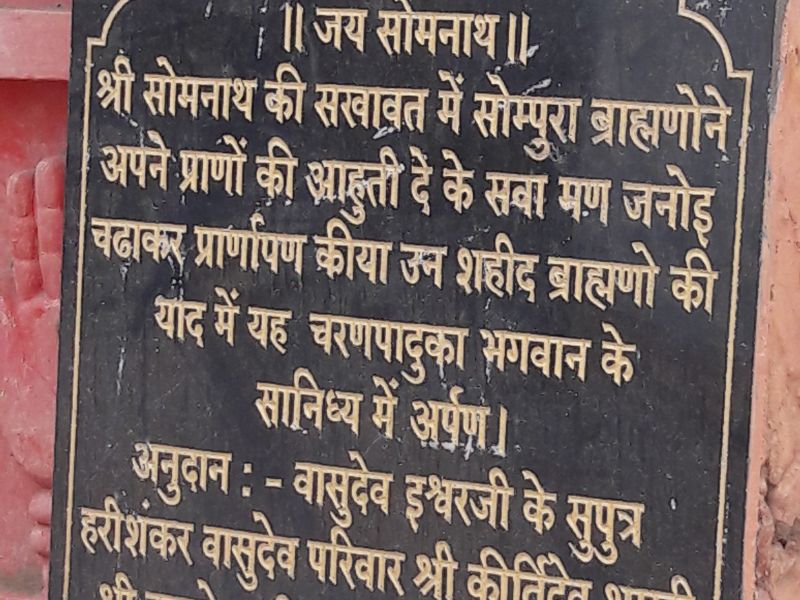 ॥ जय सोमनाथ ॥
श्री सोमनाथ की सखावत में सोम्पुरा ब्राह्मणोने
अपने प्राणों की आहुती दे के सवा मण जनोइ
चढाकर प्रार्णापण कीया उन शहीद ब्राह्मणो की
याद में यह चरणपादुका भगवान के
सानिध्य में अर्पण।
अनुदान : - वासुदेव इश्वरजी के सुपुत्र
हरीशंकर वासुदेव परिवार श्री कीर्तिदेव
श्री